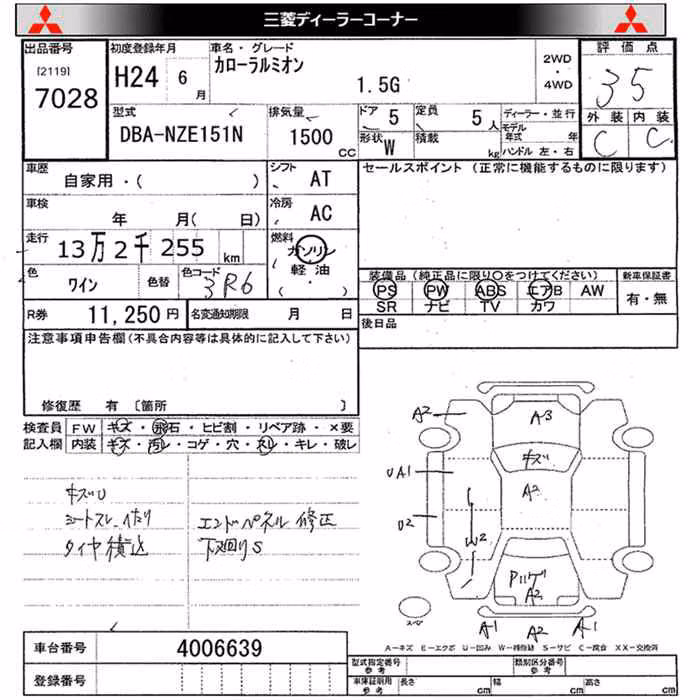 三菱ディーラーコーナー
出品番号 初度登録年月 車名・グレード 評価点
[2119] 7028 H24 6月 カローラルミオン 1.5G 2WD・4WD 35
型式 排気量 ドア 5 定員 5人 ディーラー・並行 外装 内装
DBA-NZE151N 1500CC 形状 W 積載 kg モデル年式 年 C C
ハンドル 左・右
車歴 シフト セールスポイント (正常に機能するものに限ります)
自家用・( ) AT
車検 冷房
年 月( 日) AC
走行 燃料
13万2千255km ガソリン
軽油
・
( )
色 色替 色コード
ワイン 3R6
装備品(純正品に限り○をつけてください) 新車保証書
PS PW ABS エアB AW 有・無
SR ナビ TV カワ
R券 11,250円 名変通知期限 月 日
後日品
注意事項申告欄(不具合内容等は具体的に記入して下さい)
修復歴 有 〔箇所 〕
検査員 FW キズ・飛石・ヒビ割・リペア跡・×要
記入欄 内装 キズ・汚レ・コゲ・穴・スレ・キレ・破レ
キズU
シートスレ、ヘタり エンドパネル修正
タイヤ積込 下廻りS
A2 A3
キズ
UA1 A2
U2
W2
A2
A1 A2 A1
スペア
A-キズ E-エクボ U-凹み W-補修跡 S-サビ C-腐食 XX-交換済
車台番号 4006639
登録番号
型式指定番号 参考 類別区分番号 参考
車庫証明用 参考 長さ cm 幅 cm 高さ cm